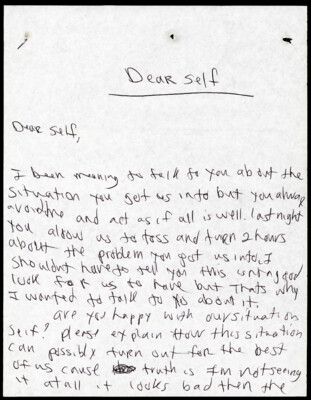 Dear self
Dear self,
I been meaning to talk to you about the
situation you got us into but you always
avoid me and act as if all is well. last night
you allows us to toss and turn 2 hours
about the problem you got us into. I
shouldn't have to tell you this isnt a good
look for us to have but thats why
I wanted to talk to you about it.
are you happy with our situation
self? please explain How this situation
can possibly turn out for the best
of us cause truth is Im not seeing
it at all it looks bad then the